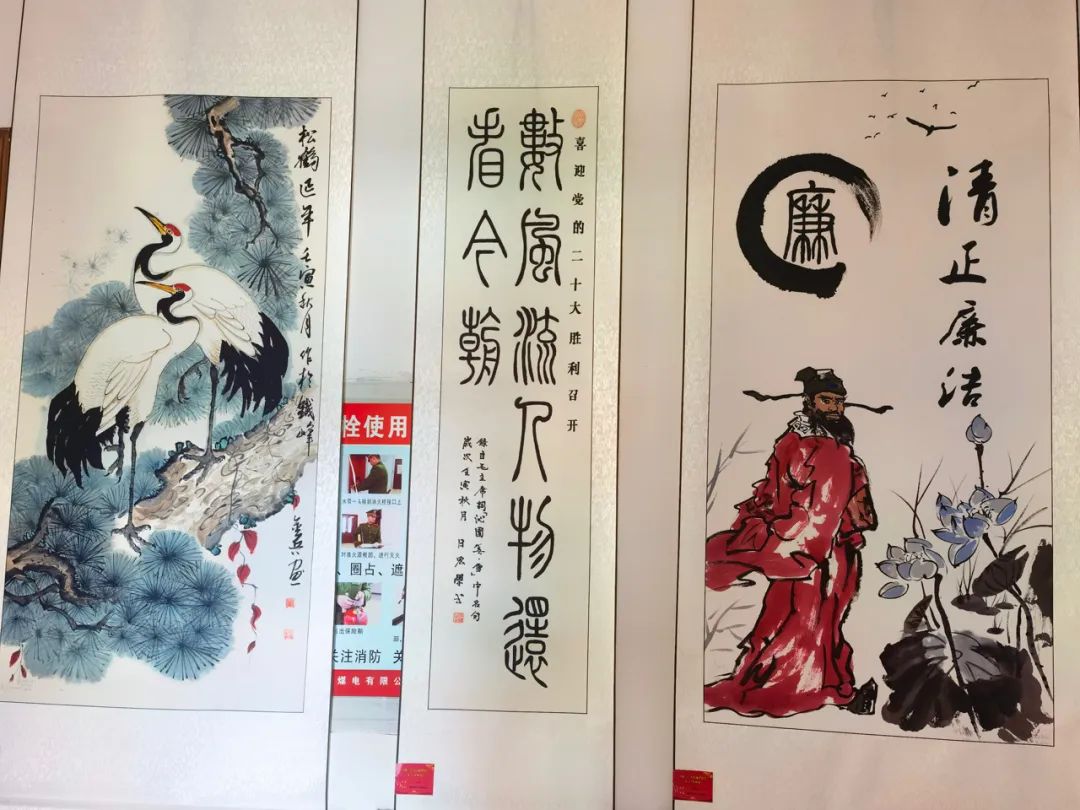 松鹤延年 壬寅秋月作於鐵峰
喜迎党的二十大胜利召开
數風流人物還
看今朝
錄自毛主席詞沁園春雪中名句
歲次壬寅秋月
清正廉洁
廉
栓使用
、圈占、遮
关注消防 关
煤电有限公